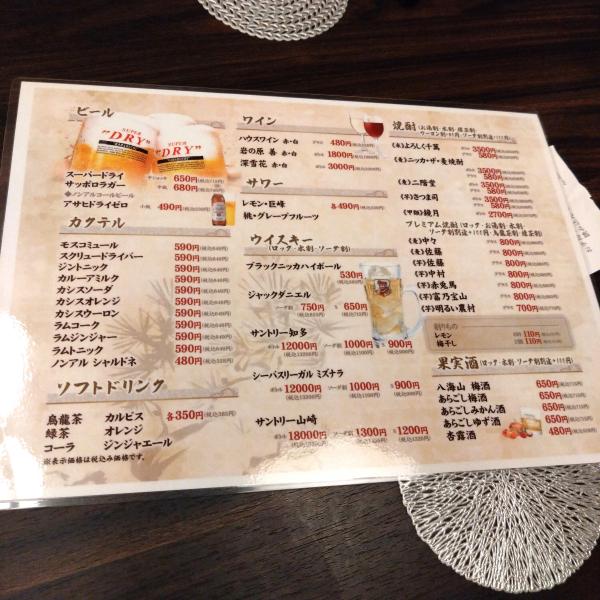 ビール
SUPER "DRY"
SUPER "DRY"
スーパードライ 650円(税込715円)
サッポロラガー 中瓶 680円
◆ノンアルコールビール
アサヒドライゼロ 小瓶 490円
カクテル
モスコミュール 590円(税込649円)
スクリュードライバー 590円(税込649円)
ジントニック 590円(税込649円)
カルーアミルク 590円(税込649円)
カシスソーダ 590円(税込649円)
カシスオレンジ 590円(税込649円)
カシスウーロン 590円(税込649円)
ラムコーク 590円(税込649円)
ラムジンジャー 590円(税込649円)
ラムトニック 590円(税込649円)
ノンアル シャルドネ 480円(税込528円)
ソフトドリンク
烏龍茶 カルピス 各350円(税込385円)
緑茶 オレンジ
コーラ ジンジャエール
※表示価格は税込み価格です。
ワイン
ハウスワイン 赤・白 グラス 480円
岩の原 善 赤・白 ボトル 1800円
深雪花 赤・白 ボトル 3000円
サワー
レモン・巨峰 各490円
桃・グレープフルーツ
ウイスキー
(ロック・水割・ソーダ割)
ブラックニッカハイボール
530円
ジャックダニエル
ソーダ割 750円 S 650円
サントリー知多
ボトル 12000円 ソーダ割 1000円 S 900円
シーバスリーガル ミズナラ
ボトル 12000円 ソーダ割 1000円 S 900円
サントリー山崎
ボトル 18000円 ソーダ割 1300円 S 1200円
焼酎
(米)よろしく千萬 ボトル 3500円
グラス 580円
(麦)ニッカ・ザ・麦焼酎
3500円
580円
(麦)二階堂 3500円
580円
(芋)さつま司 3500円
580円
(甲類)鏡月 ボトル 2700円
プレミアム焼酎(ロック・お湯割・水割
(麦)中々 グラス 800円
(麦)佐藤 グラス 800円
(芋)佐藤 グラス 800円
(芋)中村 グラス 800円
(芋)赤兎馬 グラス 800円
(芋)富乃宝山 グラス 800円
(芋)明るい農村 グラス 700円
割りもの
レモン 110円
梅干し 110円
果実酒(ロック・水割・ソーダ割別途+111円)
八海山 梅酒 650円
あらごし梅酒 650円
あらごしみかん酒 650円
あらごしゆず酒 650円
杏露酒 480円